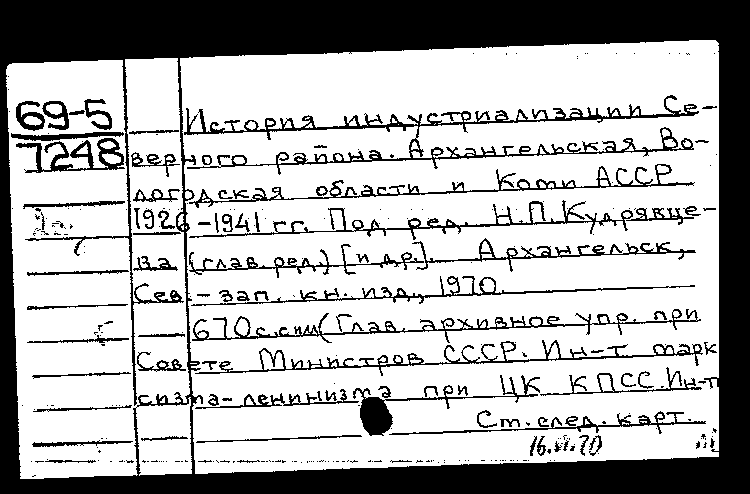 69-5
7248
История индустриализации Се-
верного района. Архангельская, Во-
логодская области и Коми АССР
1926-1941 гг. Под ред. Н.П.Кудрявце-
ва (глав. ред.) [и др.]. Архангельск,
Сев.-зап. кн. изд., 1970.
670 с. (Глав. архивное упр. при
Совете Министров СССР. Ин-т марк
сизма-ленинизма при ЦК КПСС. Ин-т
См. след. карт.